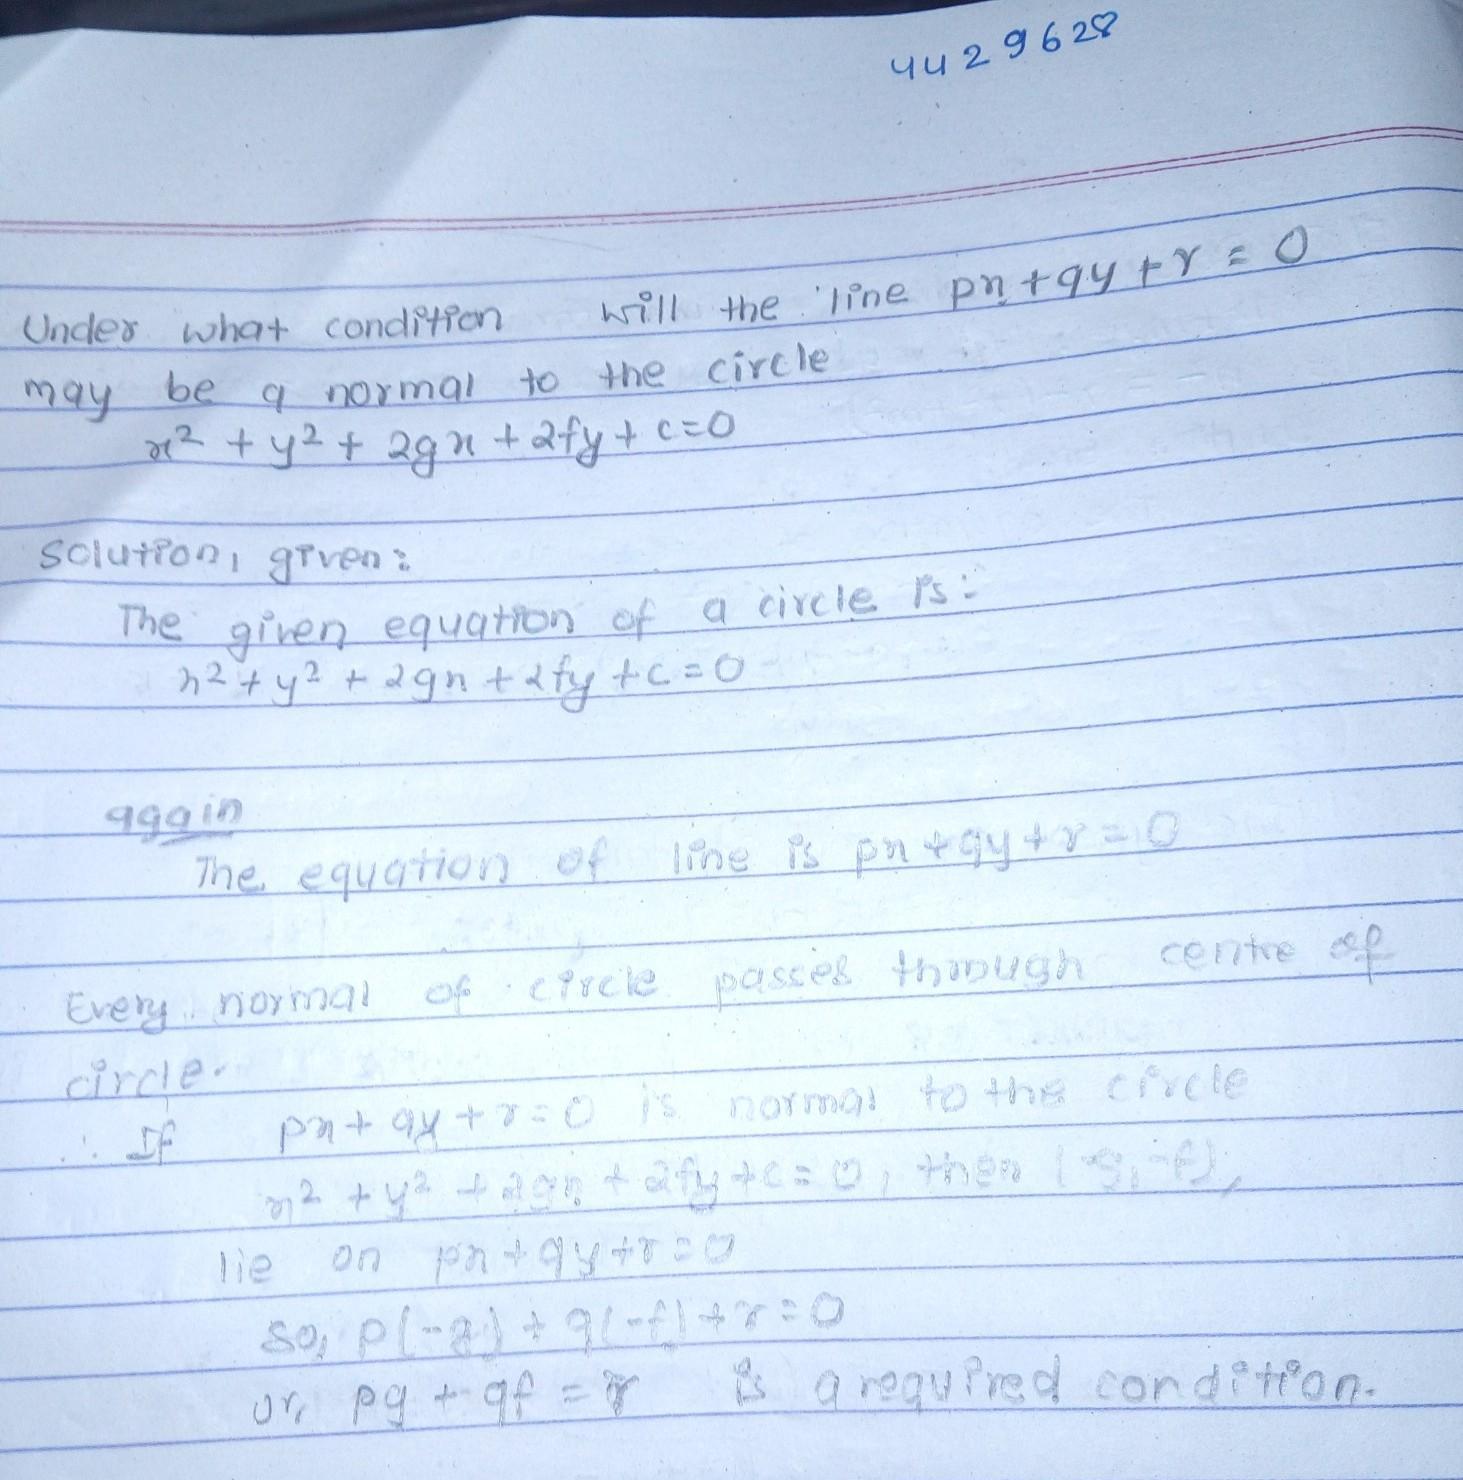 4429628
Under what condition will the line px + qy + r = 0
may be a normal to the circle
x² + y² + 2gx + 2fy + c = 0
Solution, given:
The given equation of a circle is:
x² + y² + 2gx + 2fy + c = 0
again
The equation of line is px + qy + r = 0
Every normal of circle passes through centre of
circle.
∴ If px + qy + r = 0 is normal to the circle
x² + y² + 2gx + 2fy + c = 0, then (-g, -f),
lie on px + qy + r = 0
so, p(-g) + q(-f) + r = 0
or, pg + qf = r is a required condition.